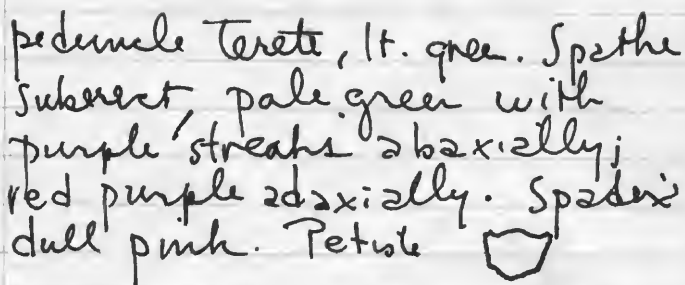 peduncle terete, lt. green. Spathe
suberect, pale green with
purple streaks abaxially;
red purple adaxially. Spadix
dull pink. Petiole